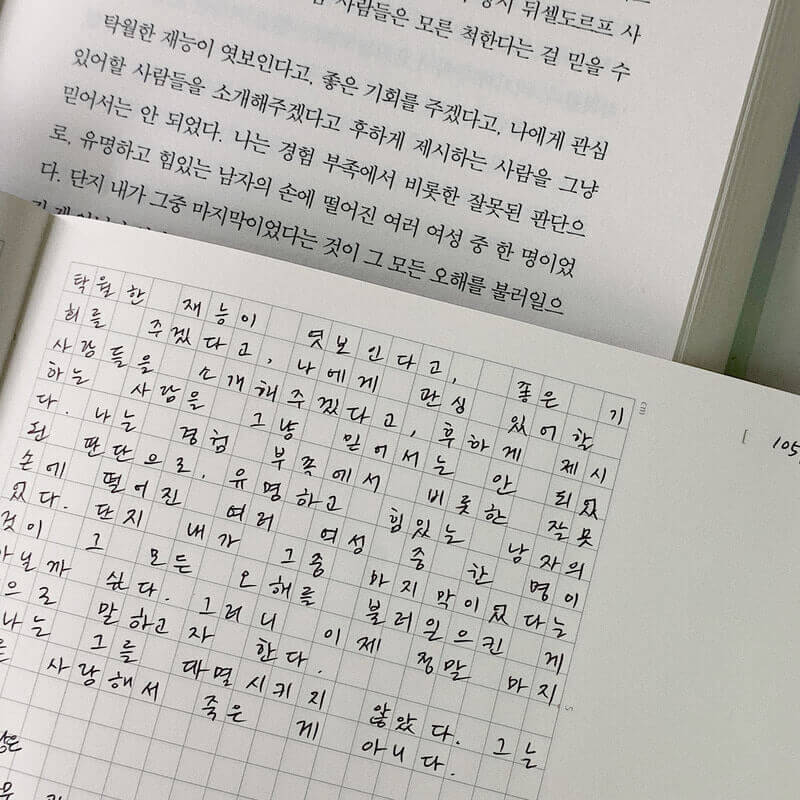 뒤셀도르프 사
사람들은 모른 척한다는 걸 믿을 수
탁월한 재능이 엿보인다고, 좋은 기회를 주겠다고, 나에게 관심
있어할 사람들을 소개해주겠다고 후하게 제시하는 사람을 그냥
믿어서는 안 되었다. 나는 경험 부족에서 비롯한 잘못된 판단으
로, 유명하고 힘있는 남자의 손에 떨어진 여러 여성 중 한 명이었
다. 단지 내가 그중 마지막이었다는 것이 그 모든 오해를 불러일으
탁월한 재능이 엿보인다고, 좋은 기
회를 주겠다고, 나에게 관심 있어할
사람들을 소개해주겠다고, 후하게 제시
하는 사람을 그냥 믿어서는 안 되었
다. 나는 경험 부족에서 비롯한 잘못
된 판단으로, 유명하고 힘있는 남자의
손에 떨어진 여러 여성 중 한 명이
었다. 단지 내가 그중 마지막이었다는
것이 그 모든 오해를 불러일으킨 게
아닐까 싶다. 그러니 이제 정말 마지
으로 말하고자 한다.
나는 그를 대멸시키지 않았다. 그는
사랑해서 죽은 게 아니다.
[ 105
cm
5